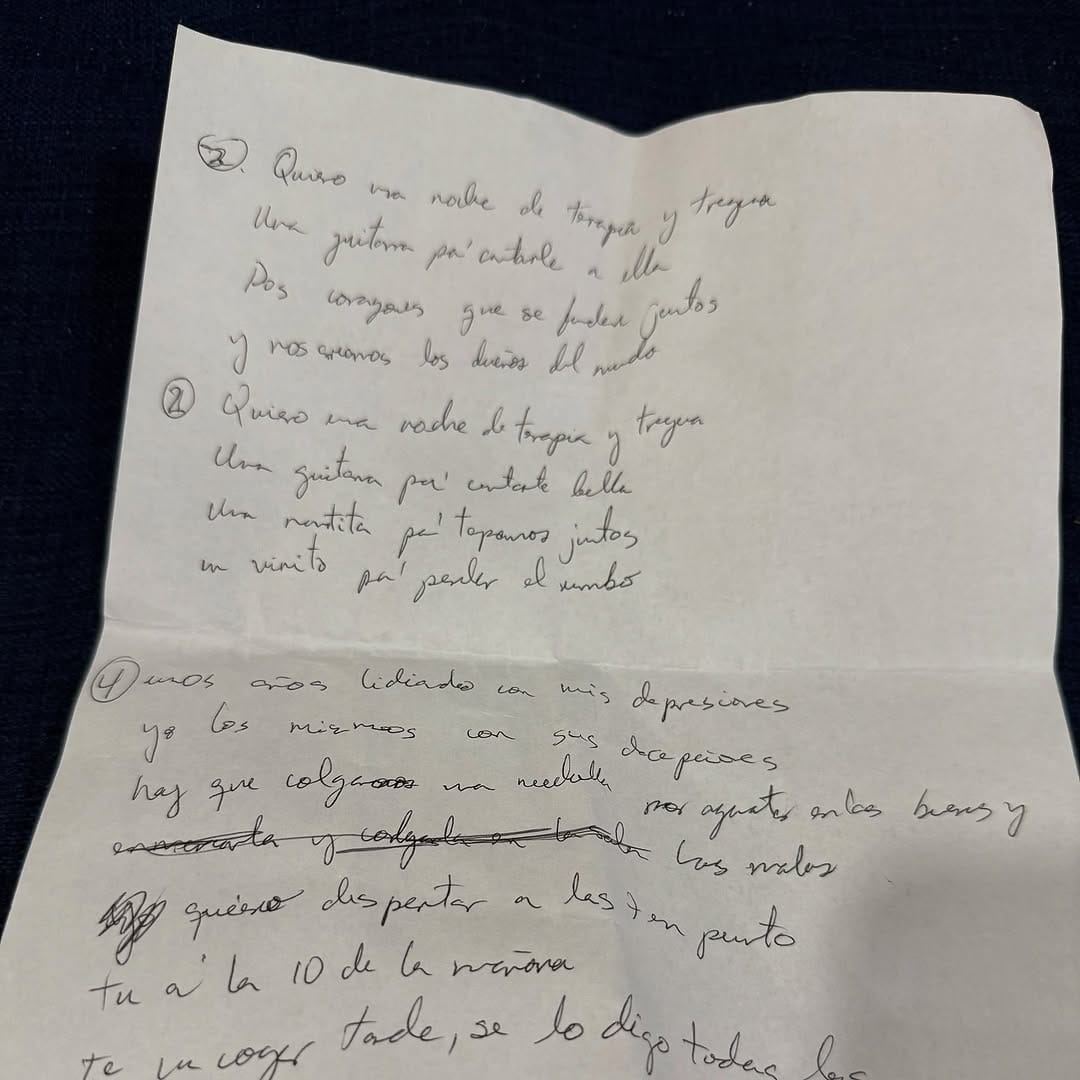 2. Quiero una noche de terapia y tregua
Una guitarra pa' cantarle a ella
Dos corazones que se funden juntos
y nos creamos los dueños del mundo
2 Quiero una noche de terapia y tregua
Una guitarra pa' cantarte bella
Una mantita pa' taparnos juntos
un vinito pa' perder el rumbo
4 unos años lidiado con mis depresiones
ya los mismos con sus decepciones
hay que colgar una medalla
por aguantar en las buenas y
enmarcarla y colgarla en la las malas
quiero despertar a las 7 en punto
tu a' la 10 de la mañana
te va coger tarde, se lo digo todas las